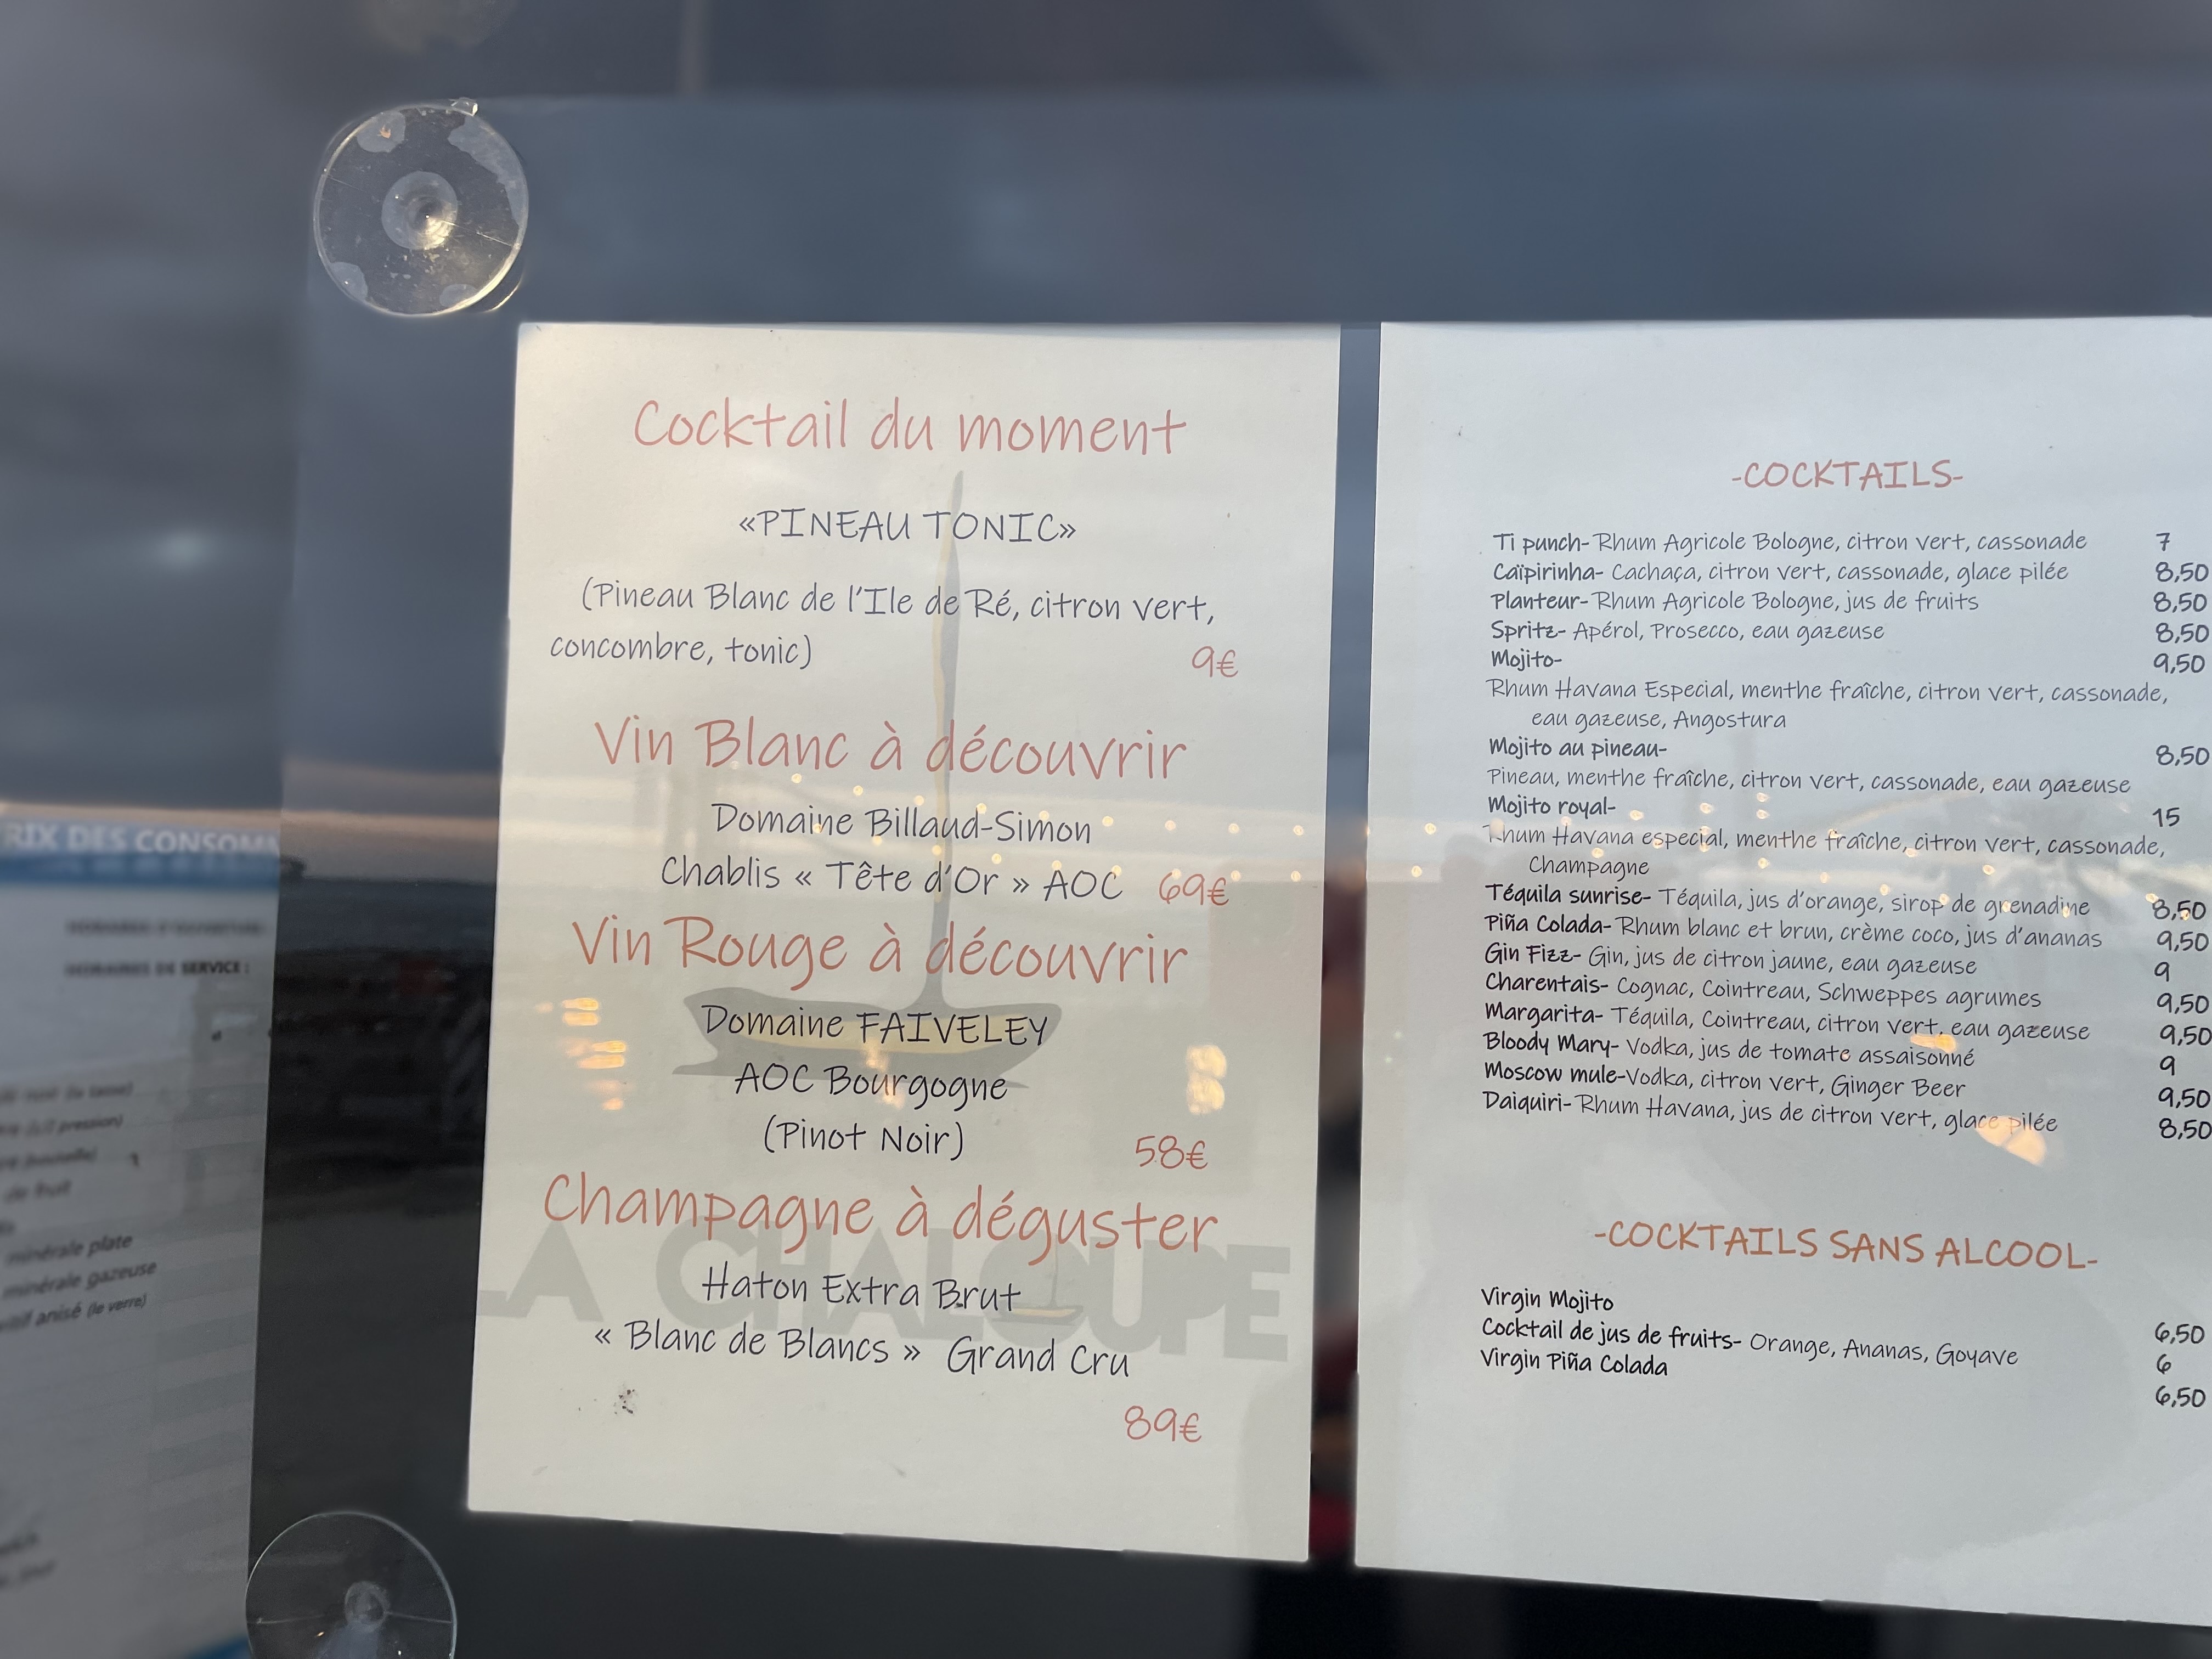 RIX DES CONSOMM
DE SERVICE :
de fruit
minérale plate
minérale gazeuse
anisé (le verre)
Cocktail du moment
«PINEAU TONIC»
(Pineau Blanc de l'Ile de Ré, citron vert,
concombre, tonic) 9€
Vin Blanc à découvrir
Domaine Billaud-Simon
Chablis « Tête d'Or » AOC 69€
Vin Rouge à découvrir
Domaine FAIVELEY
AOC Bourgogne
(Pinot Noir) 58€
Champagne à déguster
LA CHALOUPE
Haton Extra Brut
« Blanc de Blancs » Grand Cru
89€
-COCKTAILS-
Ti punch- Rhum Agricole Bologne, citron vert, cassonade 7
Caïpirinha- Cachaça, citron vert, cassonade, glace pilée 8,50
Planteur- Rhum Agricole Bologne, jus de fruits 8,50
Spritz- Apérol, Prosecco, eau gazeuse 8,50
Mojito- 9,50
Rhum Havana Especial, menthe fraîche, citron vert, cassonade,
eau gazeuse, Angostura
Mojito au pineau- 8,50
Pineau, menthe fraîche, citron vert, cassonade, eau gazeuse
Mojito royal- 15
Rhum Havana especial, menthe fraîche, citron vert, cassonade,
Champagne
Téquila sunrise- Téquila, jus d'orange, sirop de grenadine 8,50
Piña Colada- Rhum blanc et brun, crème coco, jus d'ananas 9,50
Gin Fizz- Gin, jus de citron jaune, eau gazeuse 9
Charentais- Cognac, Cointreau, Schweppes agrumes 9,50
Margarita- Téquila, Cointreau, citron vert, eau gazeuse 9,50
Bloody Mary- Vodka, jus de tomate assaisonné 9
Moscow mule-Vodka, citron vert, Ginger Beer 9,50
Daiquiri- Rhum Havana, jus de citron vert, glace pilée 8,50
-COCKTAILS SANS ALCOOL-
Virgin Mojito 6,50
Cocktail de jus de fruits- Orange, Ananas, Goyave 6
Virgin Piña Colada 6,50